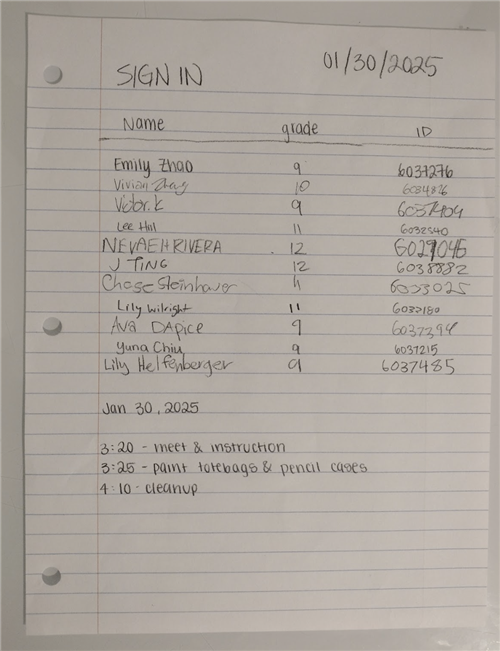 01/30/2025
SIGN IN
Name grade ID
Emily Zhao 9 6037276
Vivian Zheng 10 6034816
Victor.k 9 6037404
Lee Hill 11 6032540
NEVAEH RIVERA 12
J TING 12 6038882
Chase Steinhauer 11 6033025
Lily Wilright 11 6037180
Ava DApice 9 6037394
Yuna Chiu 9 6037215
Lily Helfenberger 9 6037485
Jan 30, 2025
3:20 - meet & instruction
3:25 - paint totebags & pencil cases
4:10 - cleanup